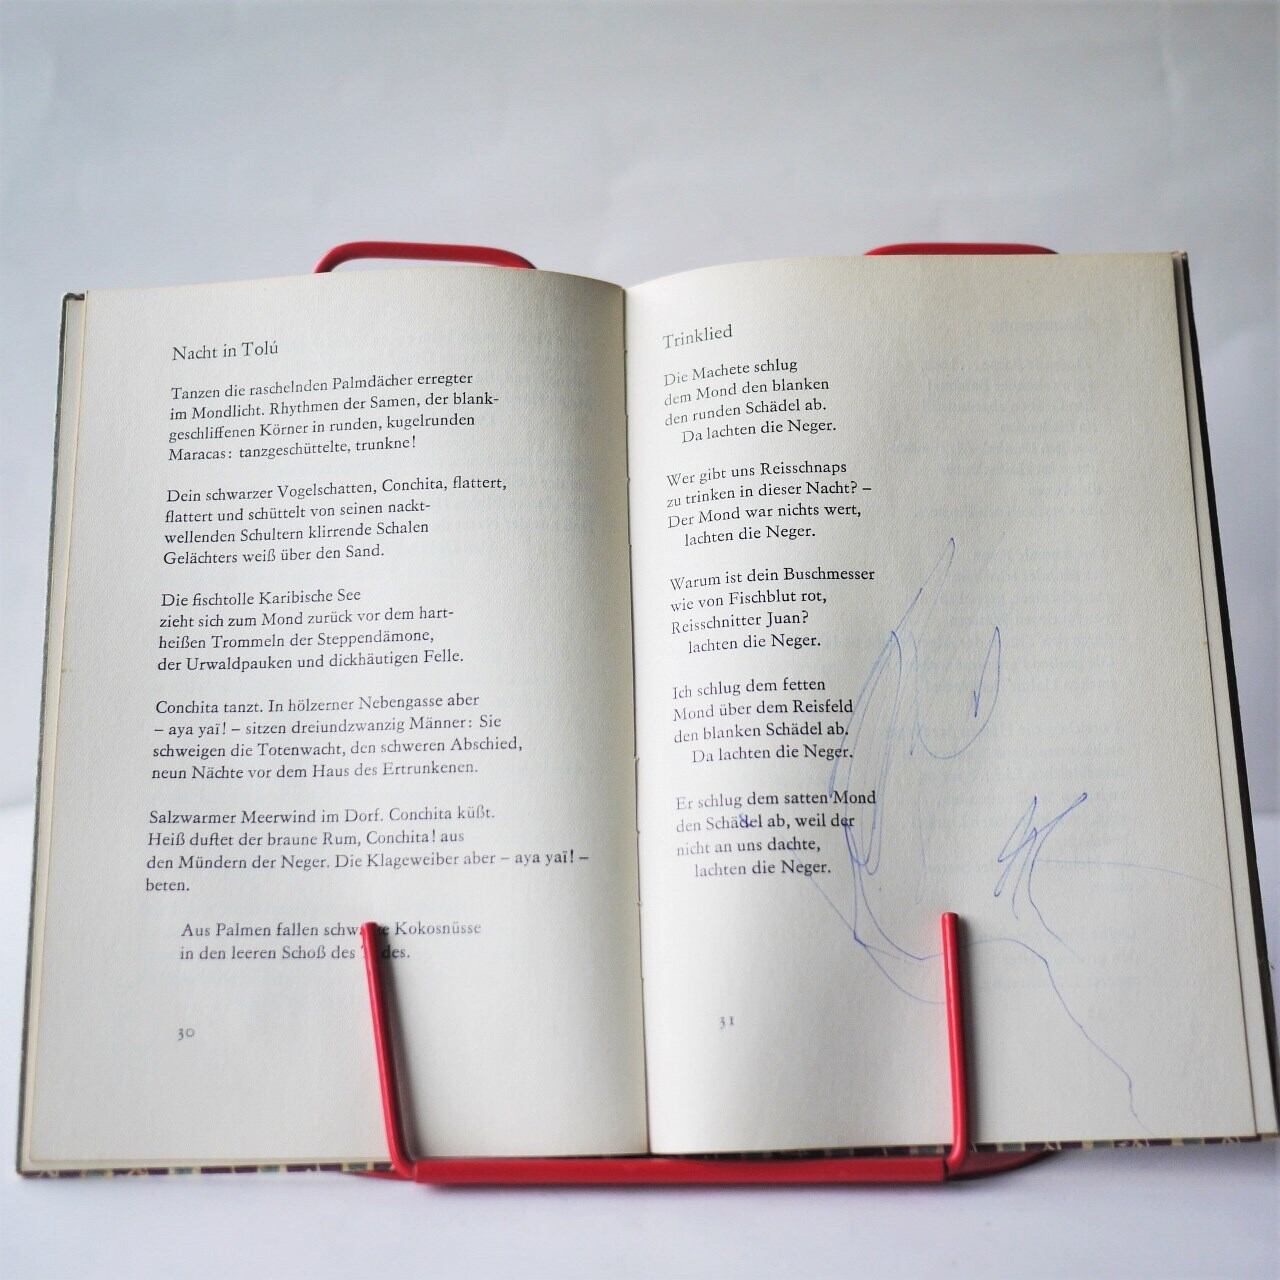 Nacht in Tolú
Tanzen die raschelnden Palmdächer erregter
im Mondlicht. Rhythmen der Samen, der blank-
geschliffenen Körner in runden, kugelrunden
Maracas: tanzgeschüttelte, trunkne!
Dein schwarzer Vogelschatten, Conchita, flattert,
flattert und schüttelt von seinen nackt-
wellenden Schultern klirrende Schalen
Gelächters weiß über den Sand.
Die fischtolle Karibische See
zieht sich zum Mond zurück vor dem hart-
heißen Trommeln der Steppendämone,
der Urwaldpauken und dickhäutigen Felle.
Conchita tanzt. In hölzerner Nebengasse aber
– aya yaï! – sitzen dreiundzwanzig Männer: Sie
schweigen die Totenwacht, den schweren Abschied,
neun Nächte vor dem Haus des Ertrunkenen.
Salzwarmer Meerwind im Dorf. Conchita küßt.
Heiß duftet der braune Rum, Conchita! aus
den Mündern der Neger. Die Klageweiber aber – aya yaï! –
beten.
Aus Palmen fallen Kokosnüsse
in den leeren Schoß des
30
Trinklied
Die Machete schlug
dem Mond den blanken
den runden Schädel ab.
Da lachten die Neger.
Wer gibt uns Reisschnaps
zu trinken in dieser Nacht? –
Der Mond war nichts wert,
lachten die Neger.
Warum ist dein Buschmesser
wie von Fischblut rot,
Reisschnitter Juan?
lachten die Neger.
Ich schlug dem fetten
Mond über dem Reisfeld
den blanken Schädel ab.
Da lachten die Neger.
Er schlug dem satten Mond
den Schädel ab, weil der
nicht an uns dachte,
lachten die Neger.
31